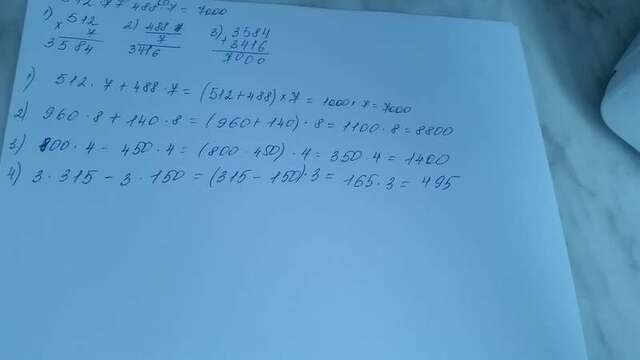 512 · 7 + 488 · 7 = 7000
1) 512 2) 488 3) 3584
× 7 7 + 3416
3584 3416 7000
1) 512 · 7 + 488 · 7 = (512 + 488) × 7 = 1000 × 7 = 7000
2) 960 · 8 + 140 · 8 = (960 + 140) · 8 = 1100 · 8 = 8800
3) 800 · 4 - 450 · 4 = (800 · 450) · 4 = 350 · 4 = 1400
4) 3 · 315 - 3 · 150 = (315 - 150) · 3 = 165 · 3 = 495